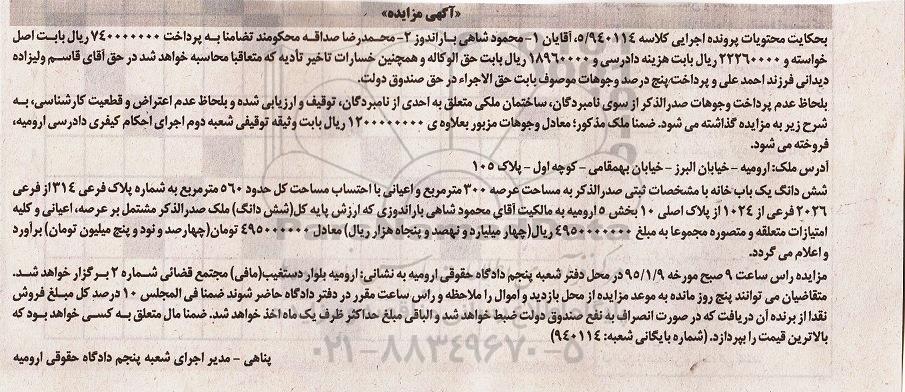 «آگهی مزایده»
بحکایت محتویات پرونده اجرایی کلاسه ۵/۹۴۰۱۱۴، آقایان ۱- محمود شاهی باراندوز ۲- محمدرضا صداقه محکومند تضامنا به پرداخت ۷۴۰۰۰۰۰۰۰ ریال بابت اصل
خواسته و ۲۲۲۶۰۰۰۰ ریال بابت هزینه دادرسی و ۱۸۹۶۰۰۰۰ ریال بابت حق الوکاله و همچنین خسارات تاخیر تأدیه که متعاقبا محاسبه خواهد شد در حق آقای قاسم ولیزاده
دیدانی فرزند احمد علی و پرداخت پنج درصد وجوهات موصوف بابت حق الاجراء در حق صندوق دولت.
بلحاظ عدم پرداخت وجوهات صدرالذکر از سوی نامبردگان، ساختمان ملکی متعلق به احدی از نامبردگان، توقیف و ارزیابی شده و بلحاظ عدم اعتراض و قطعیت کارشناسی، به
شرح زیر به مزایده گذاشته می شود. ضمنا ملک مذکور؛ معادل وجوهات مزبور بعلاوه ی ۱۲۰۰۰۰۰۰۰۰ ریال بابت وثیقه توقیفی شعبه دوم اجرای احکام کیفری دادرسی ارومیه،
فروخته می شود.
آدرس ملک: ارومیه - خیابان البرز - خیابان بهمقامی - کوچه اول - پلاک ۱۰۵
شش دانگ یک باب خانه با مشخصات ثبتی صدرالذکر به مساحت عرصه ۳۰۰ مترمربع و اعیانی با احتساب مساحت کل حدود ۵۶۰ مترمربع به شماره پلاک فرعی ۳۱۴ از فرعی
۲۰۲۶ فرعی از ۱۰۲۴ از پلاک اصلی ۱۰ بخش ۵ ارومیه به مالکیت آقای محمود شاهی باراندوزی که ارزش پایه کل(شش دانگ) ملک صدرالذکر مشتمل بر عرصه، اعیانی و کلیه
امتیازات متعلقه و متصوره مجموعا به مبلغ ۴۹۵۰۰۰۰۰۰۰ ریال(چهار میلیارد و نهصد و پنجاه هزار ریال) معادل ۴۹۵۰۰۰۰۰۰ تومان(چهارصد و نود و پنج میلیون تومان) برآورد
و اعلام می گردد.
مزایده راس ساعت ۹ صبح مورخه ۹۵/۱/۹ در محل دفتر شعبه پنجم دادگاه حقوقی ارومیه به نشانی: ارومیه بلوار دستغیب(مافی) مجتمع قضائی شماره ۲ برگزار خواهد شد.
متقاضیان می توانند پنج روز مانده به موعد مزایده از محل بازدید و أموال را ملاحظه و راس ساعت مقرر در دفتر دادگاه حاضر شوند ضمنا فی المجلس ۱۰ درصد کل مبلغ فروش
نقدا از برنده آن دریافت که در صورت انصراف به نفع صندوق دولت ضبط خواهد شد و الباقی مبلغ حداکثر ظرف یک ماه اخذ خواهد شد. ضمنا مال متعلق به کسی خواهد بود که
بالاترین قیمت را بپردازد. (شماره بایگانی شعبه: ۹۴۰۱۱۴)
پناهی - مدیر اجرای شعبه پنجم دادگاه حقوقی ارومیه
۰۲۱-۸۸۳۴۹۶۷۰-۵